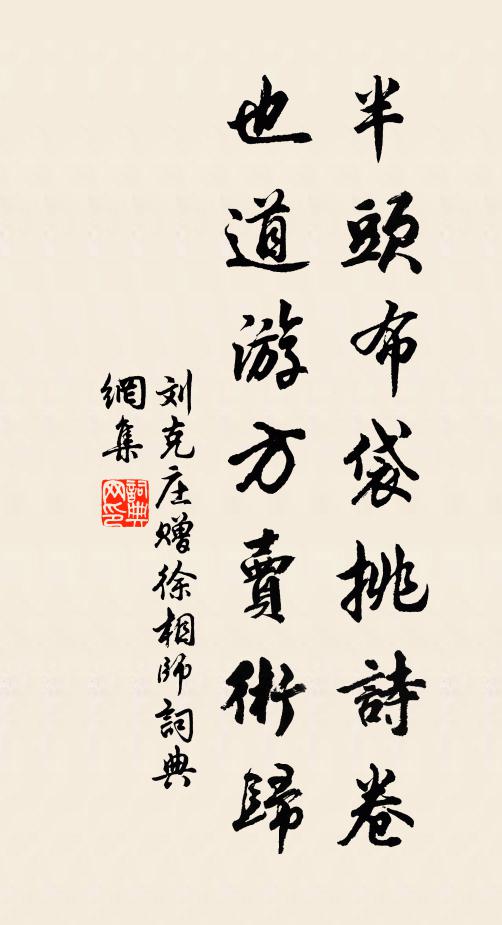 半頭布袋挑詩卷
也道游方賣術歸
刘克庄赠徐相师詞典
網集
詞典
网印